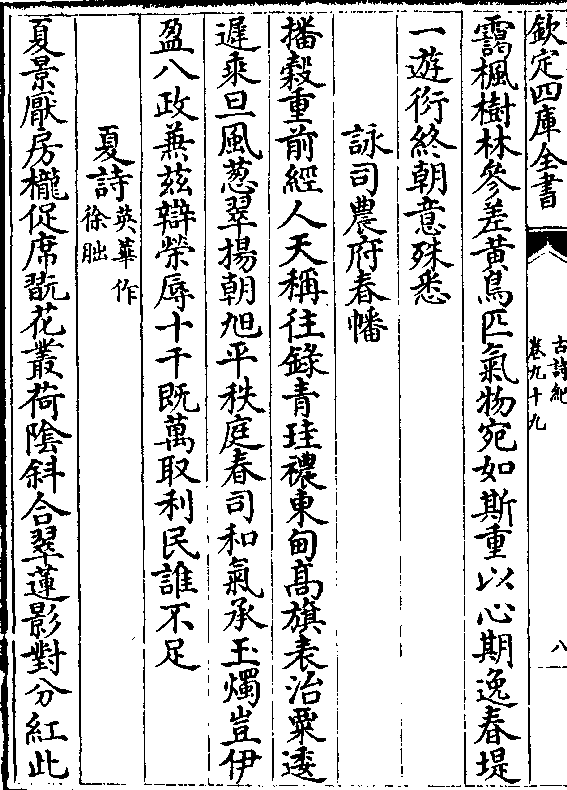 欽定四庫全書
古詩紀
卷九十九
八
靄楓樹林參差黄鳥匹氣物宛如斯重以心期逸春堤
一遊衍終朝意殊悉
詠司農府春幡
播穀重前經人天稱往錄青珪禯東甸髙旗表治粟逶
遲乘旦風葱翠揚朝旭平秩庭春司和氣承玉燭豈伊
盈八政兼兹辯榮辱十千既萬取利民誰不足
夏詩 英華作
徐朏
夏景厭房櫳促席翫花叢荷陰斜合翠蓮影對分紅此